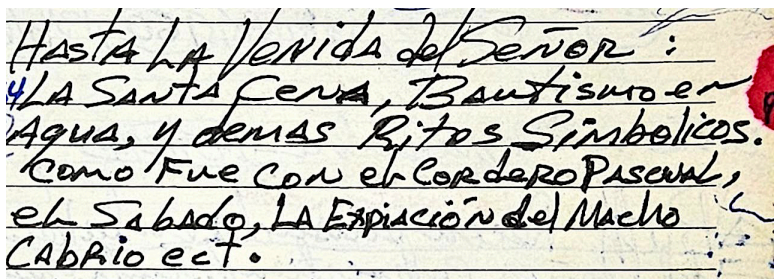 HASTA LA VENIDA del SEÑOR :
y LA SANTA CENA, Bautismo en
Agua, y demas Ritos Simbolicos.
como Fue CON el CORdeRO PASCUAL,
el Sabado, LA Expiación del Macho
CABRIO ect.